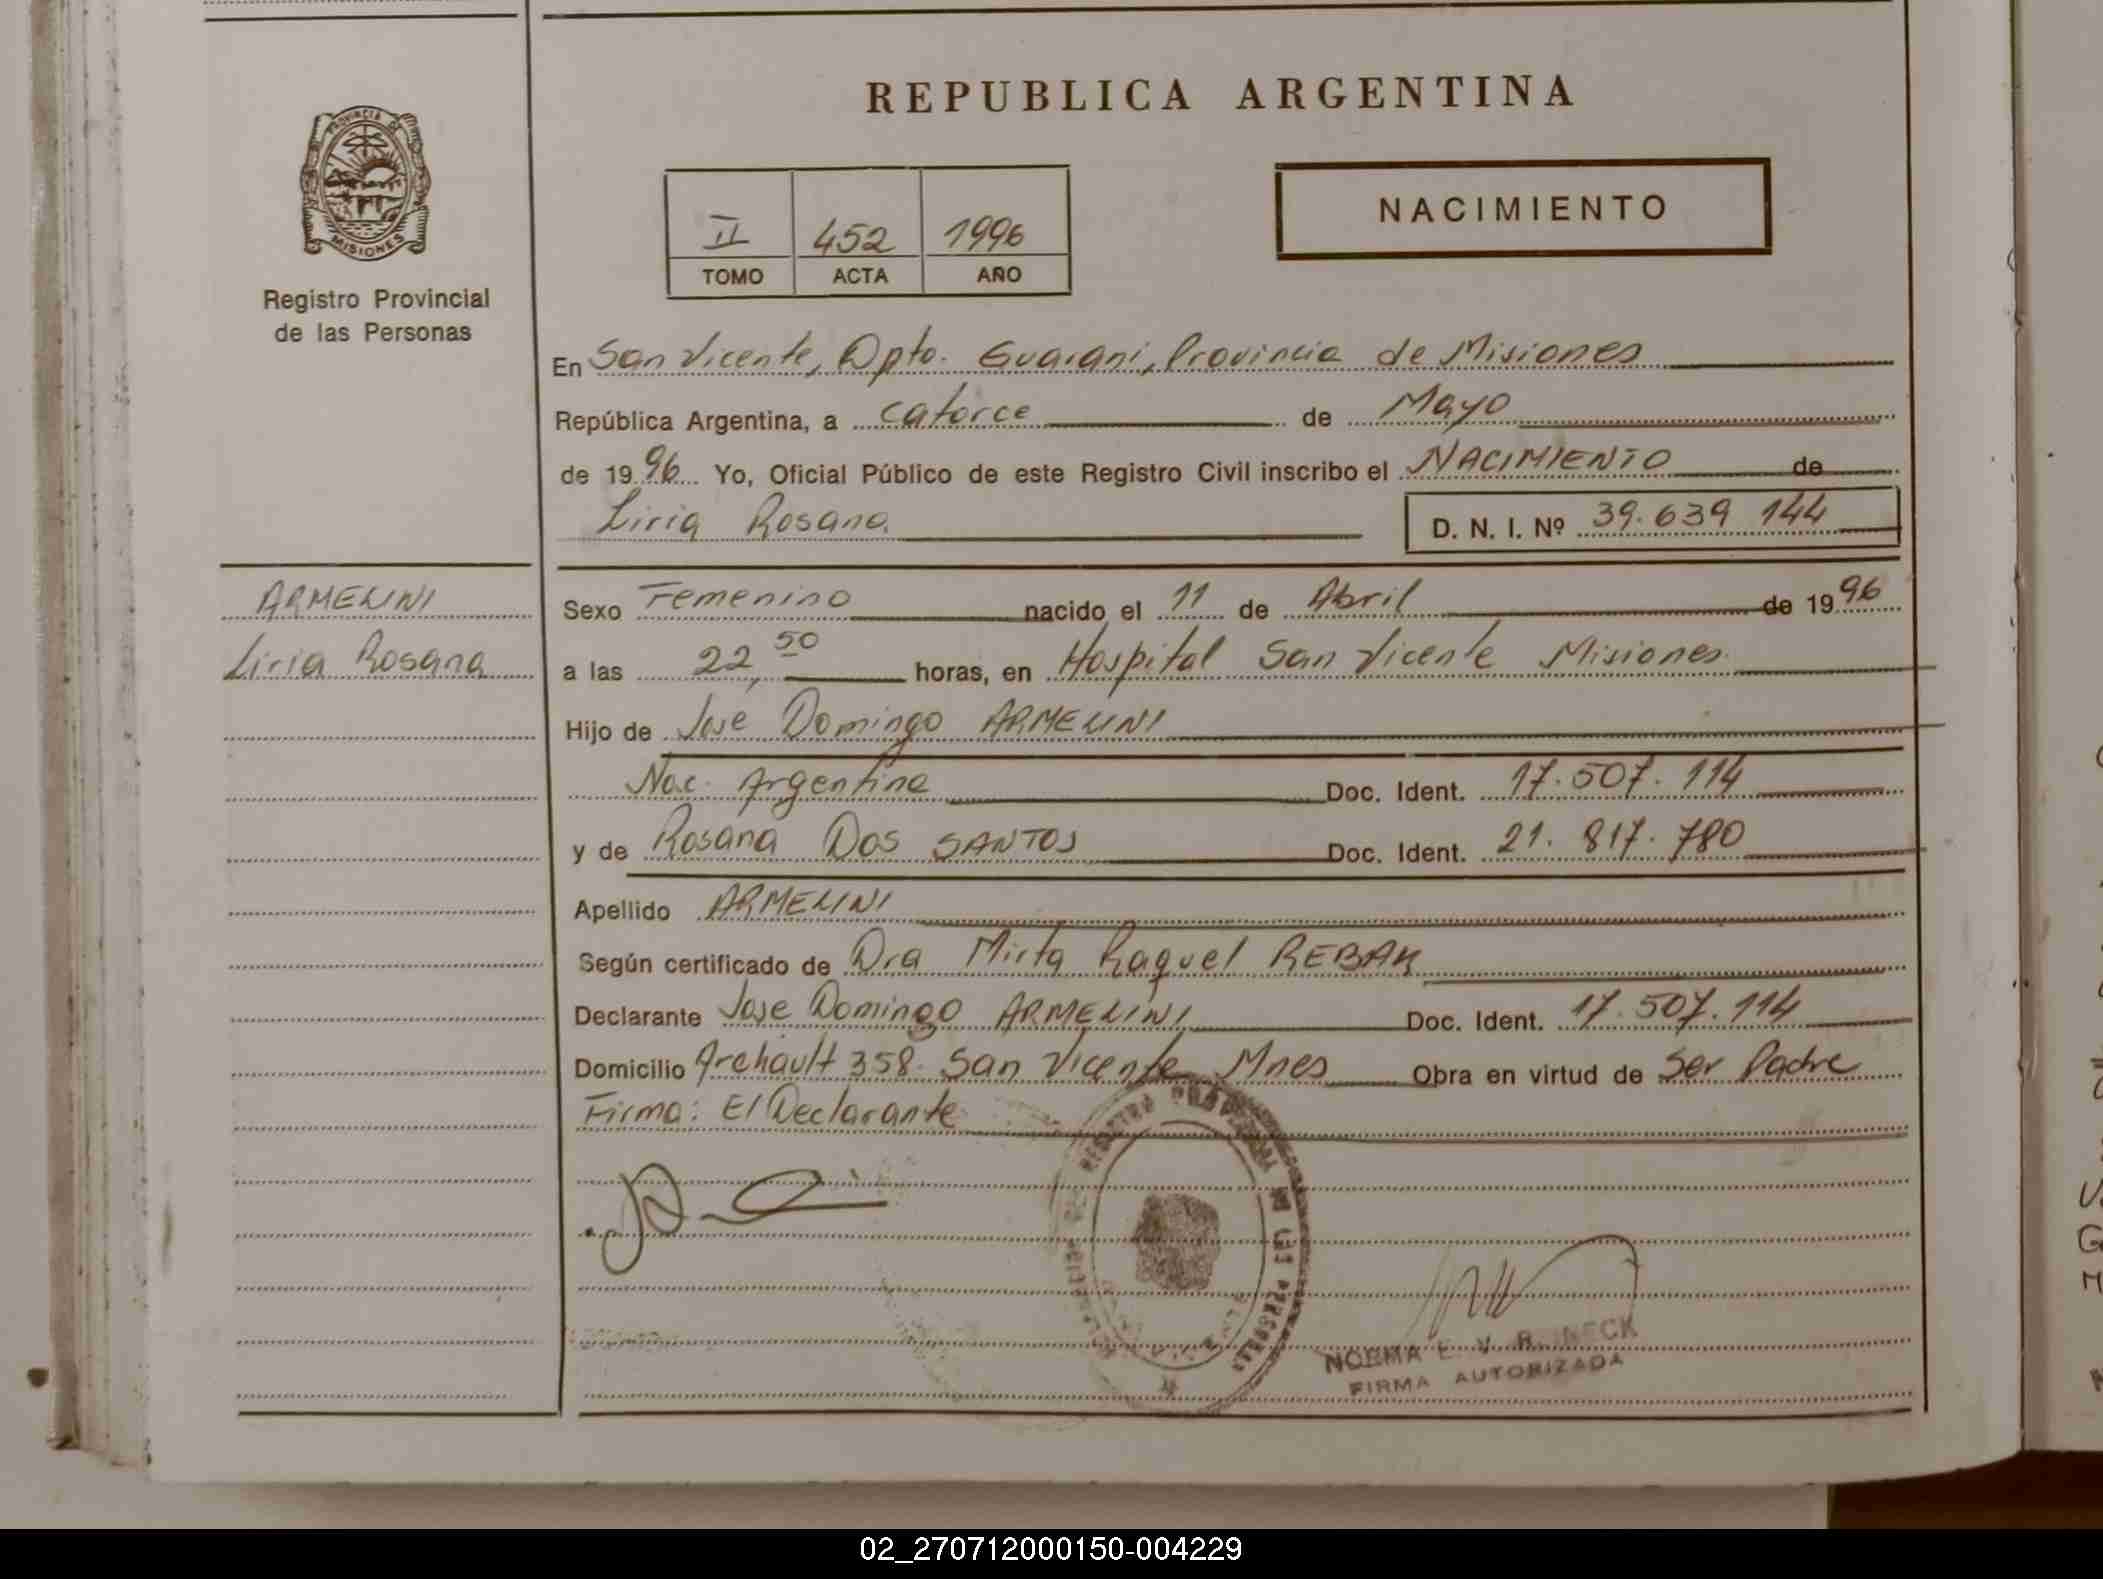 REPUBLICA ARGENTINA
PROVINCIA DE
MISIONES
Registro Provincial
de las Personas
II 452 1996
TOMO ACTA AÑO
NACIMIENTO
En San Vicente, Dpto. Guarani, Provincia de Misiones
República Argentina, a catorce de Mayo
de 1996 Yo, Oficial Público de este Registro Civil inscribo el NACIMIENTO de
Liria Rosana
D. N. I. Nº 39.639 144
ARMELINI
Liria Rosana
Sexo Femenino nacido el 11 de Abril de 1996
a las 22,50 horas, en Hospital San Vicente Misiones
Hijo de Jose Domingo ARMELINI
Nac. Argentina Doc. Ident. 17.507.114
y de Rosana DOS SANTOS Doc. Ident. 21.817.780
Apellido ARMELINI
Según certificado de Dra Mirta Raquel REBAK
Declarante Jose Domingo ARMELINI Doc. Ident. 17.507.114
Domicilio 358 San Vicente Mnes Obra en virtud de Ser Padre
Firma: El Declarante
REGISTRO PROVINCIAL DE LAS PERSONAS
NORMA E. V. R.
FIRMA AUTORIZADA
02_270712000150-004229